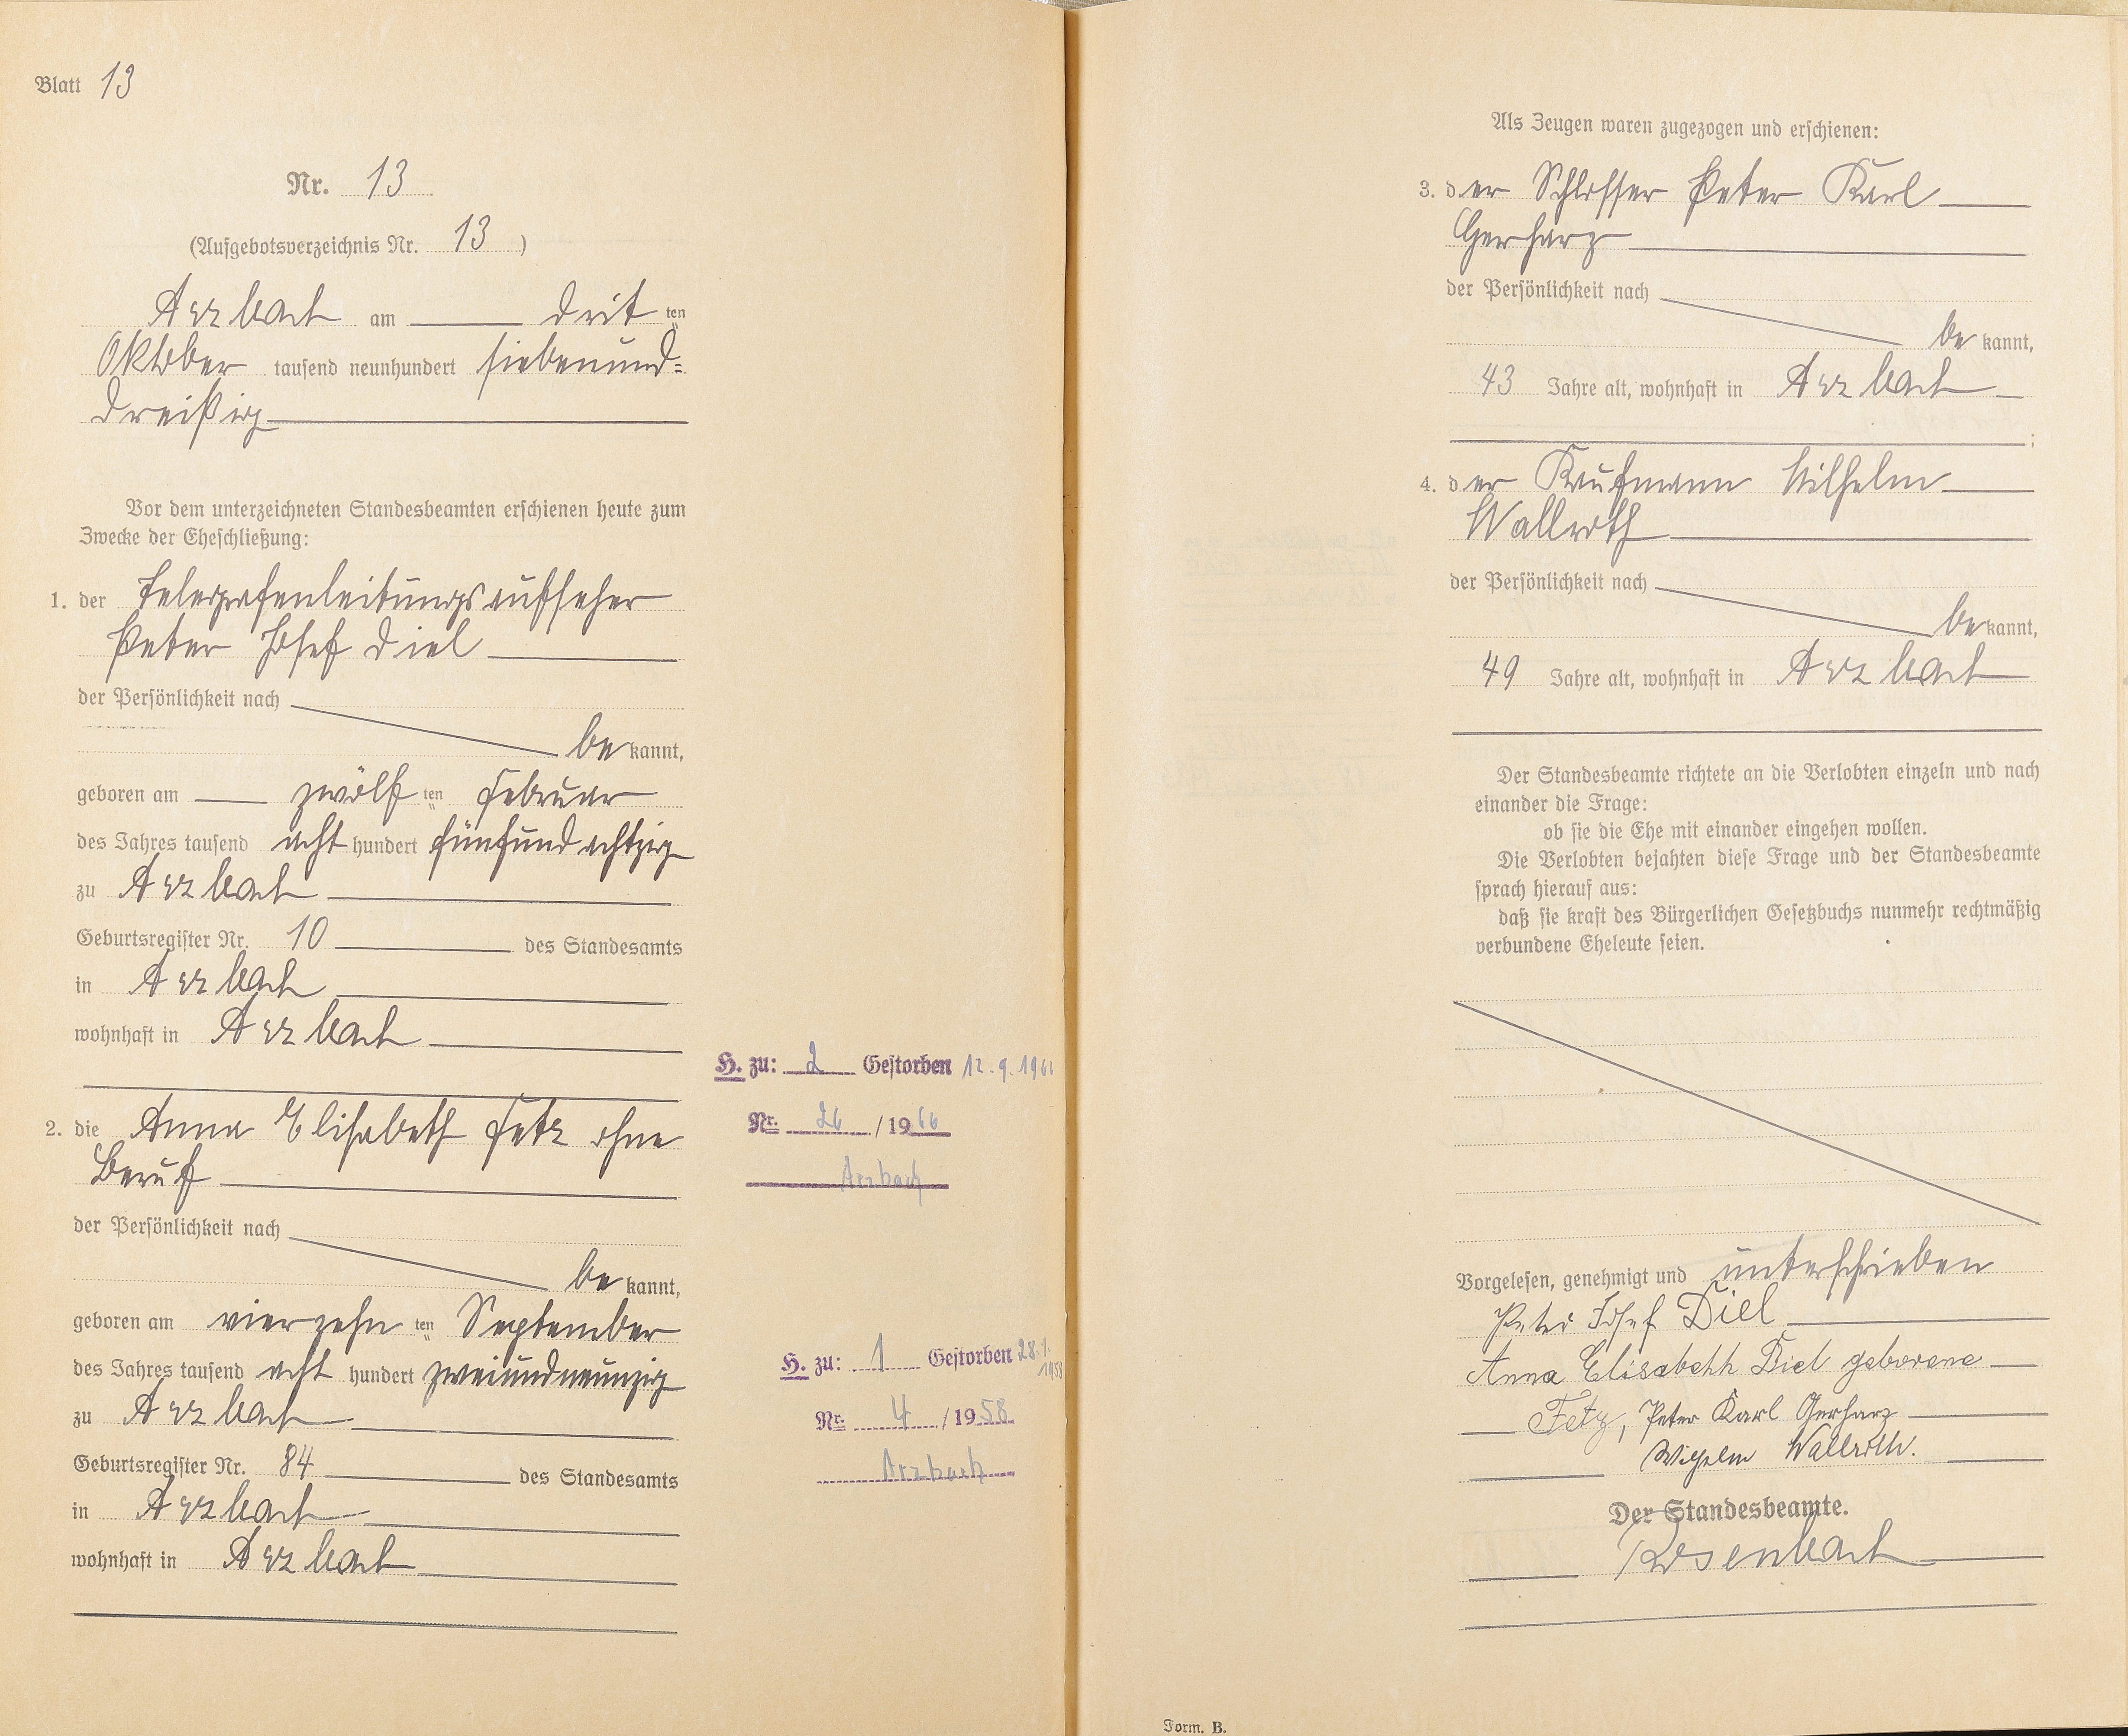 Blatt 13
Nr. 13
(Aufgebotsverzeichnis Nr. 13 )
Arzbach am drit ten
Oktober tausend neunhundert siebenund=
dreißig
Vor dem unterzeichneten Standesbeamten erschienen heute zum
Zwecke der Eheschließung:
1. der Telegrafenleitungsaufseher
Peter Josef Diel
der Persönlichkeit nach
be kannt,
geboren am zwölf ten Februar
des Jahres tausend acht hundert fünfundachtzig
zu Arzbach
Geburtsregister Nr. 10 des Standesamts
in Arzbach
wohnhaft in Arzbach
2. die Anna Elisabeth Fetz ohne
Beruf
der Persönlichkeit nach
be kannt,
geboren am vierzehn ten September
des Jahres tausend acht hundert zweiundneunzig
zu Arzbach
Geburtsregister Nr. 84 des Standesamts
in Arzbach
wohnhaft in Arzbach
H. zu: 2 Gestorben 12.9.1966
Nr. 26 / 1966
Arzbach
H. zu: 1 Gestorben 28.1.
1958
Nr. 4 / 1958
Arzbach
Als Zeugen waren zugezogen und erschienen:
3. der Schlosser Peter Karl
Gerharz
der Persönlichkeit nach
be kannt,
43 Jahre alt, wohnhaft in Arzbach
;
4. der Kaufmann Wilhelm
Wallroth
der Persönlichkeit nach
be kannt,
49 Jahre alt, wohnhaft in Arzbach
Der Standesbeamte richtete an die Verlobten einzeln und nach
einander die Frage:
ob sie die Ehe mit einander eingehen wollen.
Die Verlobten bejahten diese Frage und der Standesbeamte
sprach hierauf aus:
daß sie kraft des Bürgerlichen Gesetzbuchs nunmehr rechtmäßig
verbundene Eheleute seien.
Vorgelesen, genehmigt und unterschrieben
Peter Josef Diel
Anna Elisabeth Diel geborene
Fetz, Peter Karl Gerharz
Wilhelm Wallroth.
Der Standesbeamte.
Rosenbach
Form. B.